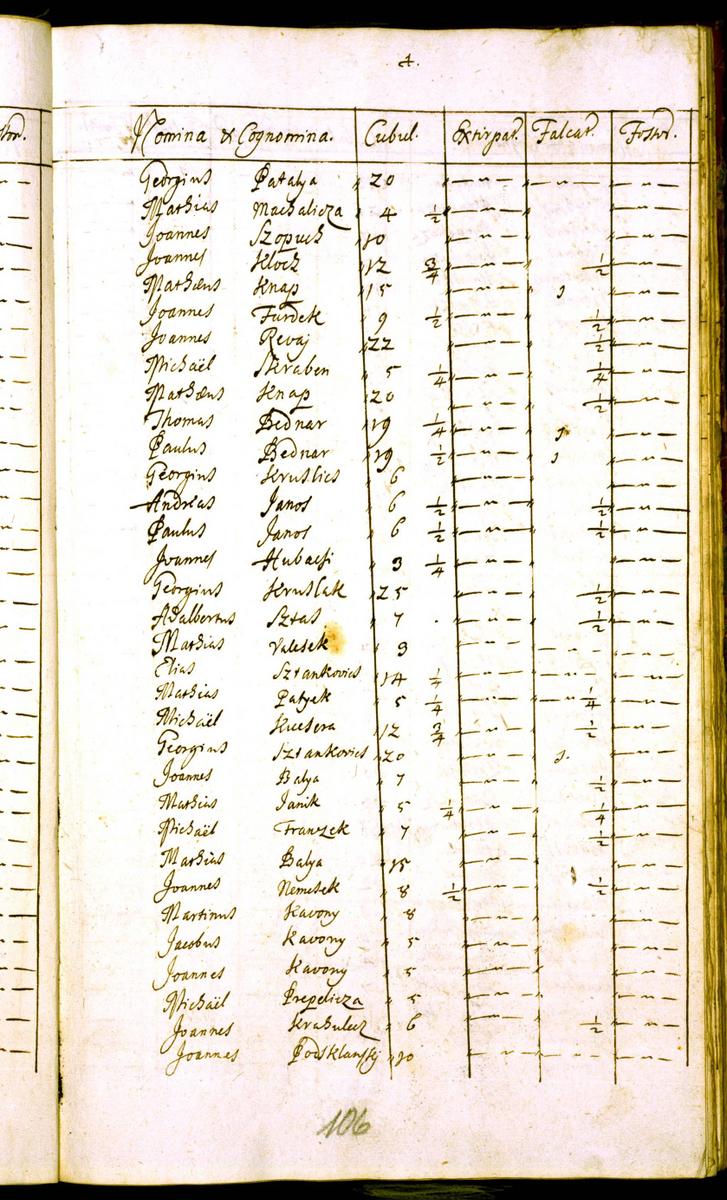 4.
Nomina & Cognomina. Cubul. Extirpat. Falcat.
Georgius Patalya " 20 " — " — " — " — " — " —
Mathias Machalicza " 4 1/2 " — " — " " — " —
Joannes Szopuch " 10 " — " — " " — " —
Joannes Kloch " 12 3/4 " — " — " 1/2 " — " —
Mathæus Knap " 15 " — " — " 1 " — " —
Joannes Furdek " 9 1/2 " — " — " 1/2 " — " —
Joannes Revaj " 22 " — " — " 1/2 " — " —
Michaël Skraben " 5 1/4 " — " — " 1/4 " — " —
Mathæus Knap " 20 " — " — " 1/2 " — " —
Thomas Bednar " 19 1/4 " — " — " 1 " — " —
Paulus Bednar " 19 1/2 " — " — " 1 " — " —
Georgius " 6 " — " — " " — " —
Andreas Janos " 6 1/2 " — " — " 1/2 " — " —
Paulus Janos " 6 1/2 " — " — " 1/2 " — " —
Joannes " 3 1/4 " — " — " " — " —
Georgius Kruslak " 25 " — " — " 1/2 " — " —
Adalbertus Sztas " 7 " — " — " 1/2 " — " —
Mathias Valesek " 9 " — " — " — " — " — " —
Elias Sztankovics " 14 1/4 " — " — " — " — " — " —
Mathias Patyek " 5 1/4 " — " — " — " 1/4 " — " —
Michaël Kucsera " 12 3/4 " — " — " 1/2 " — " —
Georgius Sztankovics " 20 " — " — " 1. " — " —
Joannes Balya " 7 " — " — " 1/2 " — " —
Mathias Janik " 5 1/4 " — " — " 1/4 " — " —
Michaël Franzek " 7 " — " — " 1/2 " — " —
Mathias Balya " 15 " — " — " " — " —
Joannes Nemesek " 8 1/2 " — " — " 1/2 " — " —
Martinus Kavony " 8 " — " — " " — " —
Jacobus Kavony " 5 " — " — " " — " —
Joannes Kavony " 5 " — " — " " — " —
Michaël Prepelicza " 5 " — " — " " — " —
Joannes Krahulecz " 6 " — " — " 1/2 " — " —
Joannes Podsklansky " 10 " — " — " — " — " — " —
106